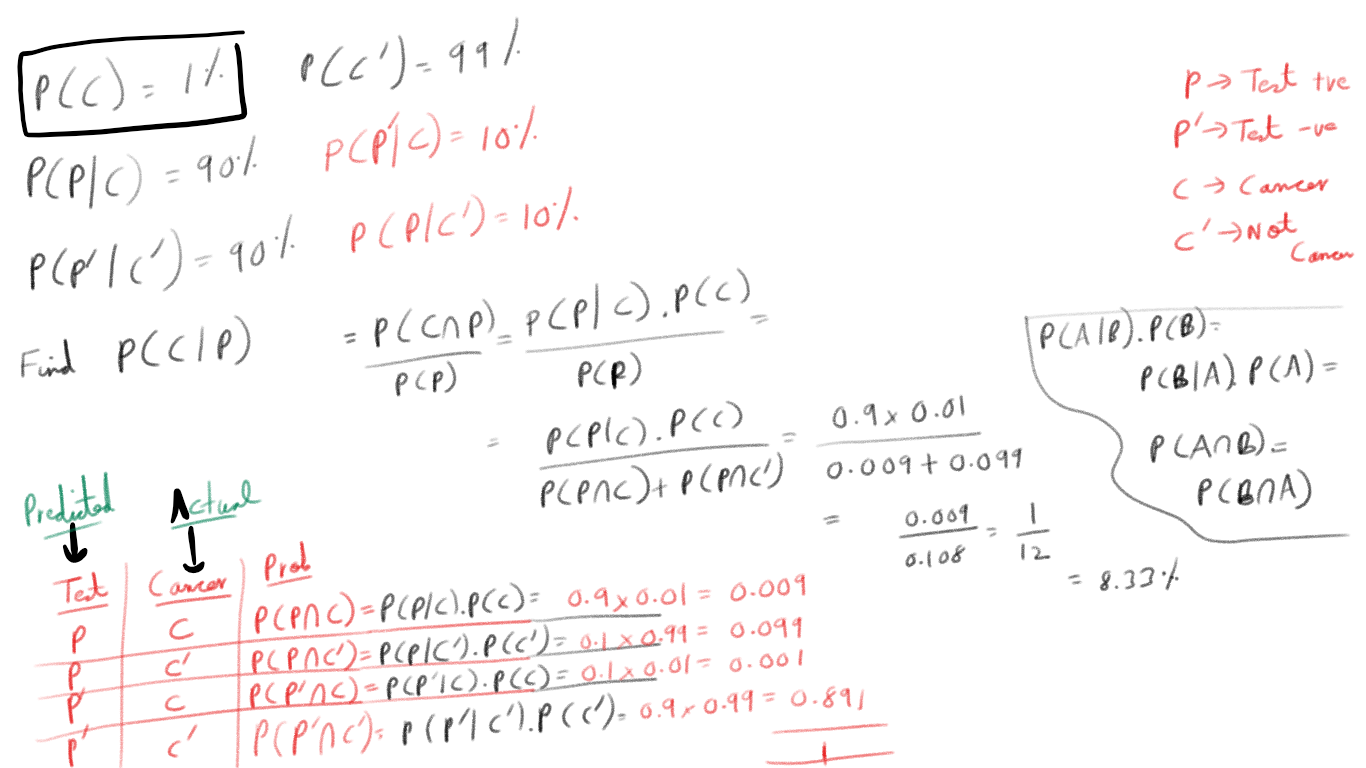 P(C) = 1% P(C') = 99%
P → Test +ve
P' → Test -ve
C → Cancer
C' → Not Cancer
P(P|C) = 90% P(P'|C) = 10%
P(P'|C') = 90% P(P|C') = 10%
Find P(C|P) = P(C∩P) / P(P) = P(P|C).P(C) / P(P) =
= P(P|C).P(C) / P(P∩C) + P(P∩C') = 0.9 x 0.01 / 0.009 + 0.099
= 0.009 / 0.108 = 1/12
= 8.33%
P(A|B).P(B) =
P(B|A).P(A) =
P(A∩B) =
P(B∩A)
Predicted Actual
Test Cancer Prob
P C P(P∩C) = P(P|C).P(C) = 0.9 x 0.01 = 0.009
P C' P(P∩C') = P(P|C').P(C') = 0.1 x 0.99 = 0.099
P' C P(P'∩C) = P(P'|C).P(C) = 0.1 x 0.01 = 0.001
P' C' P(P'∩C') = P(P'|C').P(C') = 0.9 x 0.99 = 0.891
1